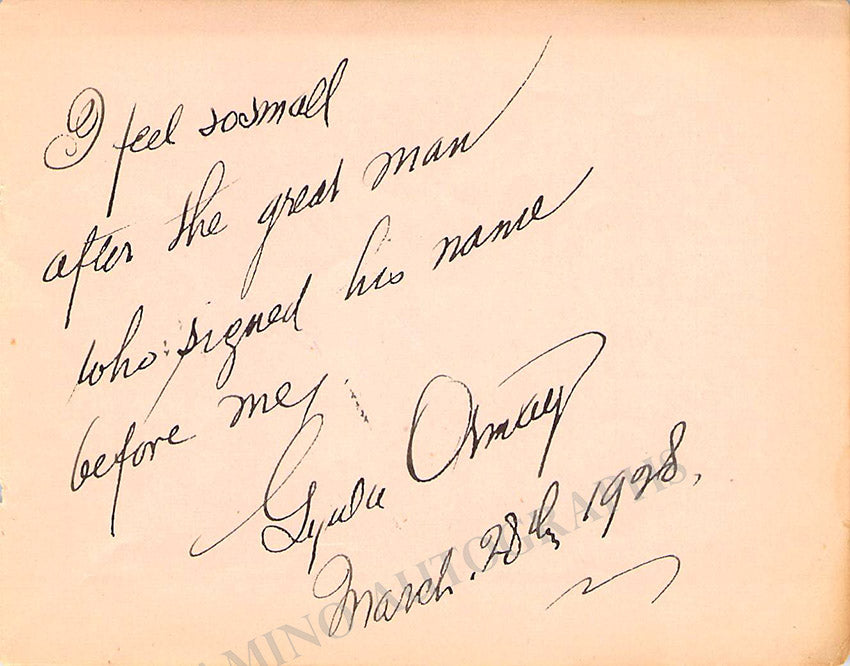 I feel so small
after the great man
who signed his name
before me,
Gyula Ormay
March. 28th, 1928.
AMINO AUTOGRAPHS